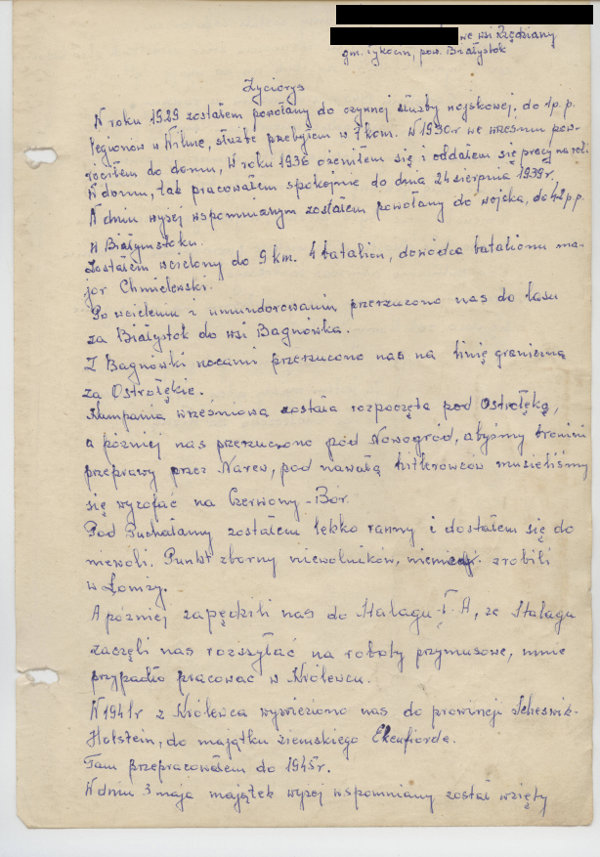 we wsi Rzędziany
gm. Tykocin, pow. Białystok
Życiorys
W roku 1929 zostałem powołany do czynnej służby wojskowej, do 1 p.p.
legionów w Wilnie, służbę przebyłem w 7 kom. W 1930 r we wrześniu pow-
róciłem do domu, W roku 1936 ożeniłem się i oddałem się pracy na roli
W domu, tak pracowałem spokojnie do dnia 24 sierpnia 1939 r.
W dniu wyżej wspomnianym zostałem powołany do wojska, do 42 p.p.
w Białymstoku.
Zostałem wcielony do 9 km. 4 batalion, dowódca batalionu ma-
jor Chmielewski.
Po wcieleniu i umundurowaniu przerzucono nas do lasu
za Białystok do wsi Bagnówka.
Z Bagnówki nocami przerzucono nas na linię graniczną
za Ostrołękie.
Kampania wrześniowa została rozpoczęta pod Ostrołęką,
a później nas przerzucono pod Nowogród, abyśmy bronili
przeprawy przez Narew, pod nawałą hitlerowców musieliśmy
się wycofać na Czerwony-Bór.
Pod Puchałamy zostałem lekko ranny i dostałem się do
niewoli. Punkt zborny niewolników, zrobili
w Łomży.
A później zapędzili nas do Stalagu I A, ze Stalagu
zaczęli nas rozsyłać na roboty przymusowe, mnie
przypadło pracować w Królewcu.
W 1941 r z Królewca wywieziono nas do prowincji Schleswik-
Holstein, do majątku ziemskiego Ekenfiorde.
Tam przepracowałem do 1945 r.
W dniu 3 maja majątek wyżej wspomniany został wzięty